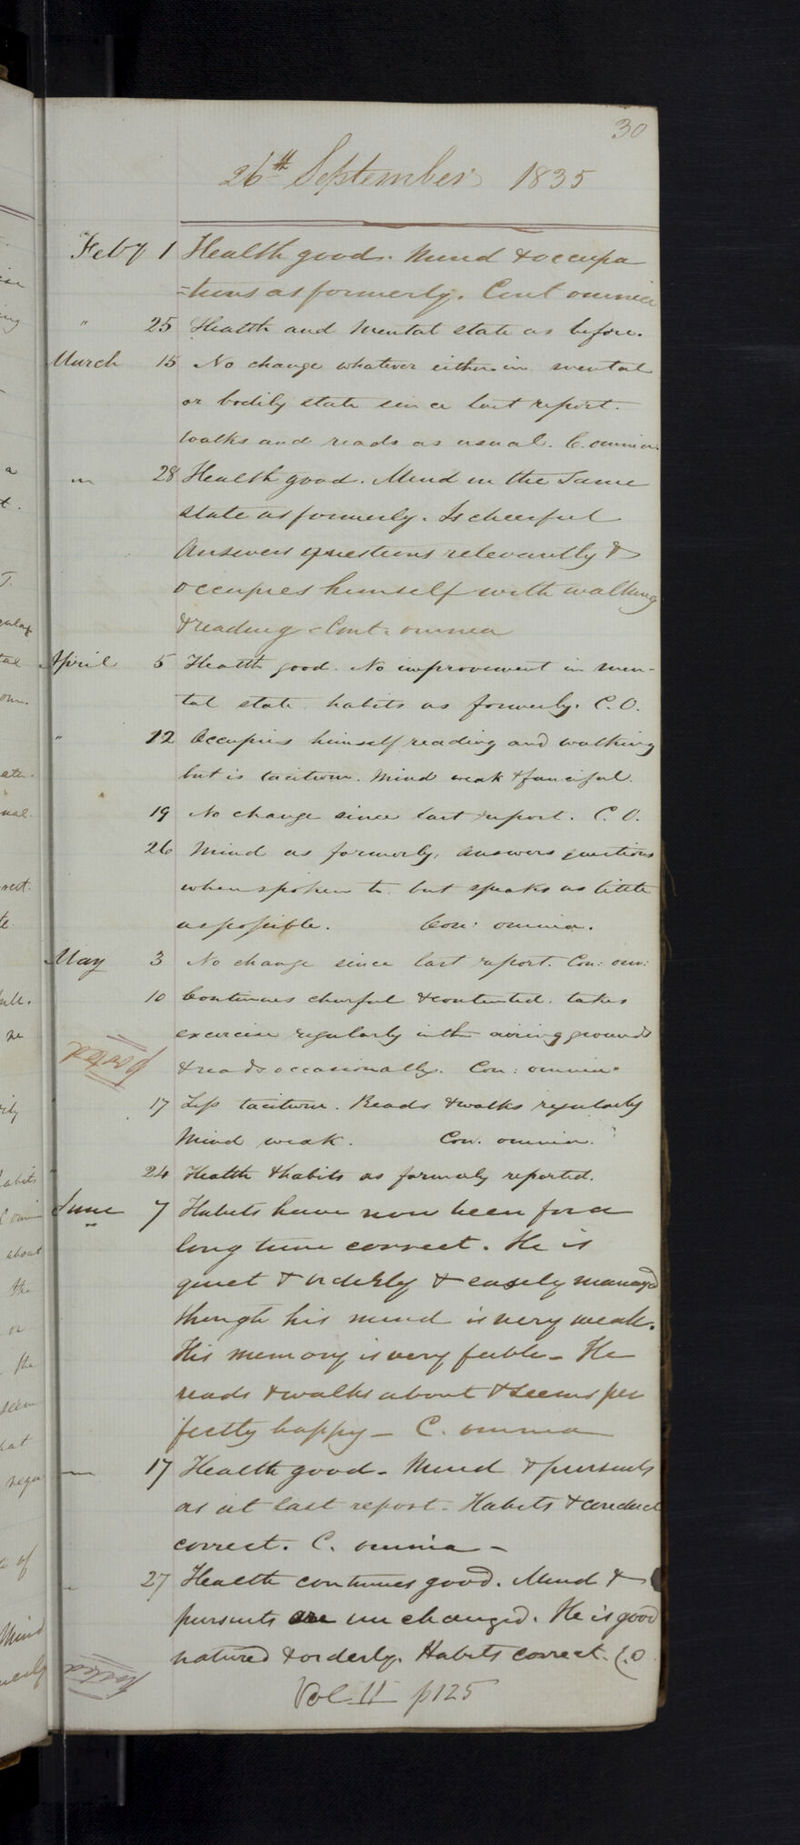 30
26th September 1835
Feby 1 Health good. Mind & occupa
=tions as formerly. Cont omnia
" 25 Health and Mental state as before.
March 15 No change whatever either in mental
or bodily state since last report.
Walks and reads as usual. C. omnia.
" 28 Health good. Mind in the same
state as formerly. Is cheerful
Answers questions relevantly &
occupies himself with walking
& reading - Cont. omnia
April 5 Health good. No improvement in men-
tal state habits as formerly. C.O.
" 12 Occupies himself reading and walking
but is taciturn. Mind weak & fanciful.
19 No change since last report. C.O.
26 Mind as formerly, answers questions
when spoken to but speaks as little
as possible. Con: omnia.
May 3 No change since last report. Con: om:
10 Continues cheerful & contented. takes
exercise regularly in the airing grounds
& reads occasionally. Con: omnia.
posted
17 Less taciturn. Reads & walks regularly
Mind weak. Con. omnia.
24 Health & habits as formerly reported.
June 7 Habits have now been for a
long time correct. He is
quiet & orderly & easily managed
though his mind is very weak.
His memory is very feeble - He
reads & walks about & seems per
fectly happy - C. omnia
17 Health good - Mind & pursuits
as at last report - Habits & conduct
correct. C. omnia -
27 Health continues good. Mind &
pursuits are unchanged. He is good
natured & orderly. Habits correct. C.O
posted
Vol II p125